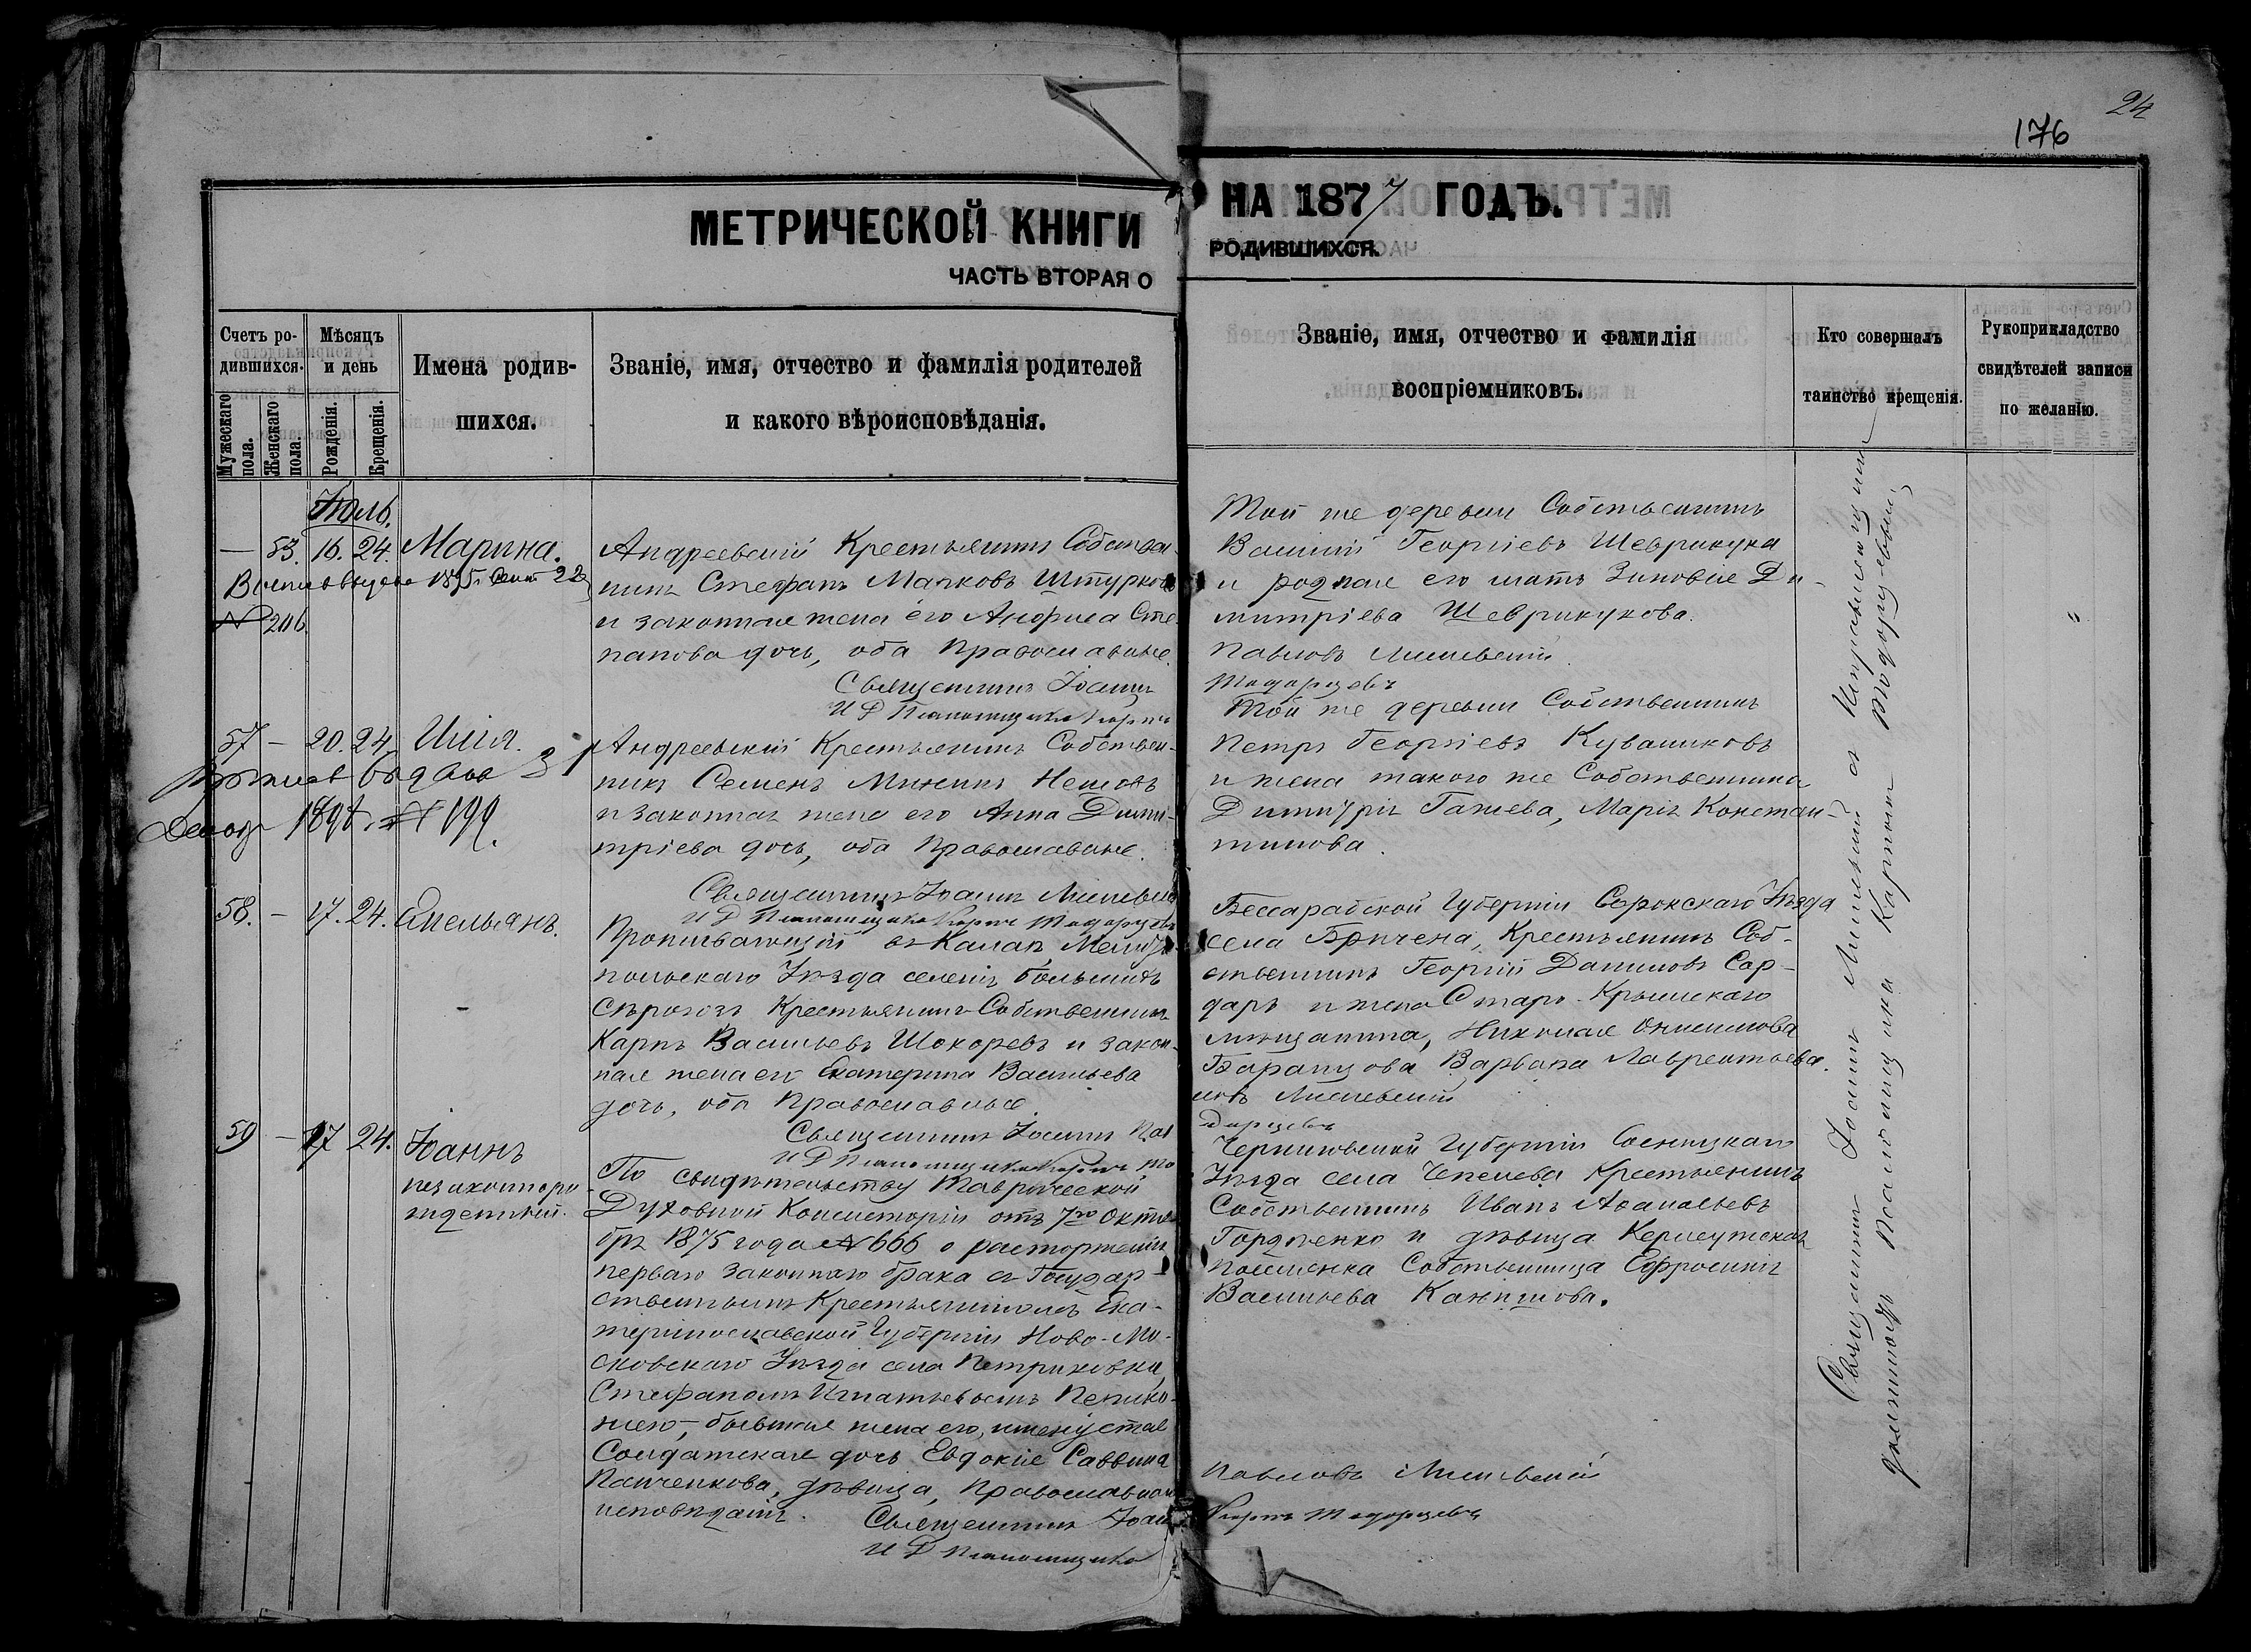 24
176
МЕТРИЧЕСКОЙ КНИГИ НА 1877 ГОДЪ.
ЧАСТЬ ВТОРАЯ О РОДИВШИХСЯ.
Счетъ ро-
дившихся.
Мужескаго пола.
Женскаго пола.
Мѣсяцъ
и день
Рожденія.
Крещенія.
Имена родив-
шихся.
Званіе, имя, отчество и фамилія родителей
и какого вѣроисповѣданія.
Званіе, имя, отчество и фамилія
воспріемниковъ.
Кто совершалъ
таинство крещенія.
Рукоприкладство
свидѣтелей записи
по желанію.
Іюль.
— 53. 16. 24. Марина.
1895 Сент 22
№ 206
Андреевскій Крестьянинъ Собствен-
никъ Стефанъ Матковъ
и законная жена его Анфиса Сте-
панова дочь, оба Православные.
Священникъ Іоаннъ
И Д Псаломщика Карпъ
Той же деревни Собственникъ
Василій Георгіевъ Шеврикука
и родная его мать Зиновія Ди-
митріева Шеврикукова.
Павловъ
Тодорцевъ
57 — 20. 24. Илія.
№ 199.
Андреевскій Крестьянинъ Собствен-
никъ Семенъ Мининъ
и законная жена его Анна Дими-
тріева дочь, оба Православные.
Священникъ Іоаннъ
И Д Псаломщика Карпъ Тодорцевъ
Той же деревни Собственникъ
Петръ Георгіевъ Куваниковъ
и жена такого же Собственника
Димитрія Гажева, Марія Констан-
тинова.
58. — 17. 24. Емельянъ.
Проживающій въ
польскаго Уѣзда селенія Большихъ
Сѣрогозъ Крестьянинъ Собственникъ
Карпъ Васильевъ Шокоревъ и закон-
ная жена его Екатерина Васильева
дочь, оба Православные.
Священникъ Іоаннъ Пав
И Д Псаломщика Карпъ То
Бессарабской Губерніи Сорокскаго Уѣзда
села Бричена, Крестьянинъ Соб-
ственникъ Георгій Даниловъ Сар-
даръ и жена Старо-Крымскаго
мѣщанина, Николая Онисимова
Баранцова Варвара Лаврентьева.
ловъ
дорцевъ
59 — 17 24. Іоаннъ
незаконноро
жденный.
По свидѣтельству Таврической
Духовной Консисторіи отъ 7го Октя-
бря 1875 года № 666 о расторженіи
перваго законнаго брака съ Государ-
ственнымъ Крестьяниномъ Ека-
теринославской Губерніи Ново-Мо-
сковскаго Уѣзда села Петриковки,
Стефаномъ Игнатьевымъ
бывшая жена его,
Солдатская дочь Евдокія Саввина
Панченкова, дѣвица, Православнаго
исповѣданія.
Священникъ Іоаннъ
И Д Псаломщика
Черниговской Губерніи Сосницкаго
Уѣзда села Чепелева Крестьянинъ
Собственникъ Иванъ Аѳанасьевъ
Гордѣенко и дѣвица
поселенка Собственница Ефросинія
Васильева
Павловъ
Карпъ Тодорцевъ
Священникъ Іоаннъ
Псаломщика Карпомъ Тодорцевымъ